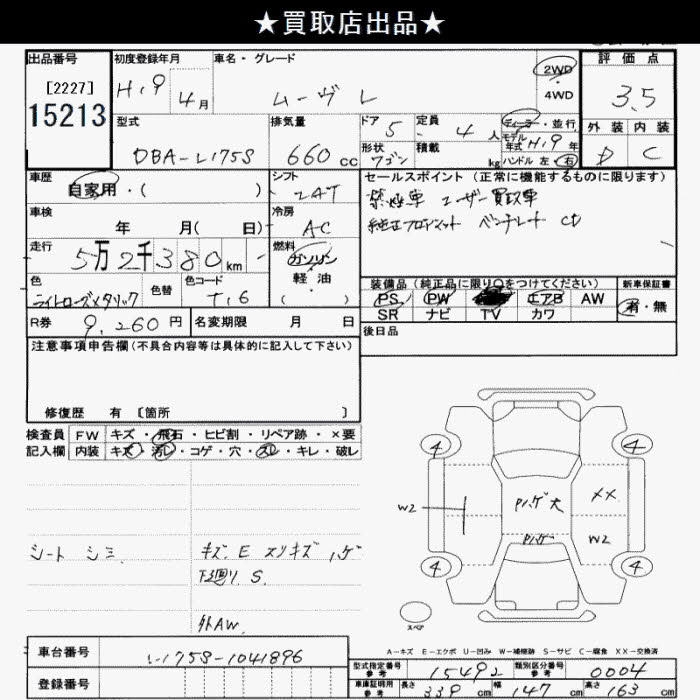 ★買取店出品★
出品番号 初度登録年月 車名・グレード 評価点
[2227] H19 2WD
15213 4月 ムーヴ L 4WD 3.5
型式 排気量 ドア 定員 ディーラー・並行 外装 内装
DBA-L175S 660cc 5 4人 モデル年式 H19年 D C
形状 ワゴン 積載 kg ハンドル 左・右
車歴 シフト セールスポイント(正常に機能するものに限ります)
自家用・( ) 禁煙車 ユーザー買取車
車検 冷房 純正フロアマット CD
年 月( 日) AC
走行 5万2千380km 燃料 ガソリン
軽油
( )
色 色替 色コード 装備品(純正品に限り○をつけてください) 新車保証書
ライトローズメタリック T16 PS PW エアB AW 有・無
SR ナビ TV カワ
R券 9,260円 名変期限 月 日 後日品
注意事項申告欄(不具合内容等は具体的に記入して下さい)
修復歴 有 [箇所 ]
検査員 FW キズ・飛石・ヒビ割・リペア跡・×要
記入欄 内装 キズ・汚レ・コゲ・穴・スレ・キレ・破レ
4 4
W2 Pハゲ大 XX
Pハゲ W2
シートシミ キズ.E スリキズ ハゲ
下廻り.S.
4 4
外AW.
スペア
A-キズ E-エクボ U-凹み W-補修跡 S-サビ C-腐食 XX-交換済
車台番号 L175S-1041896
登録番号
型式指定番号 参考 15492 類別区分番号 参考 0004
車庫証明用 参考 長さ 339cm 幅 147cm 高さ 163cm